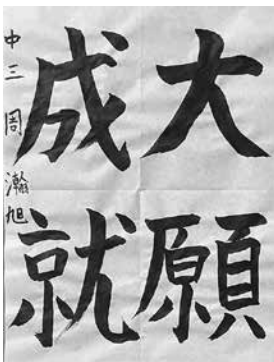 大願
成就
中三 周 瀚旭